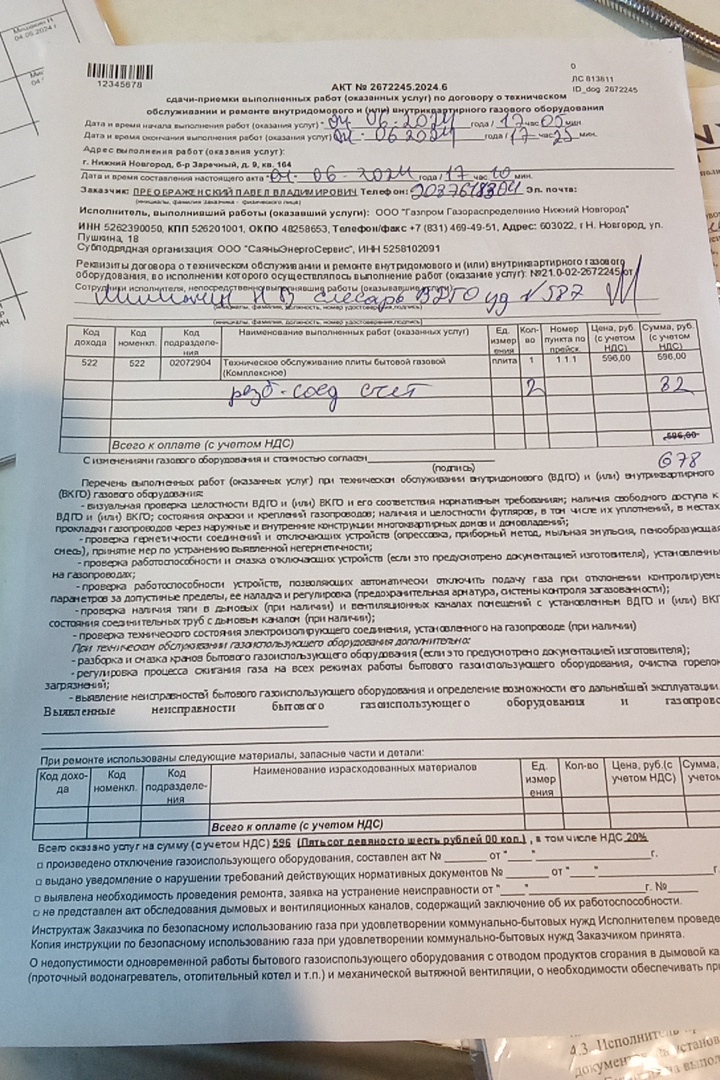 Мишакин Н
04.05.2024 г
12345678
0
ЛС 813811
ID_dog 2672245
АКТ № 2672245.2024.6
сдачи-приемки выполненных работ (оказанных услуг) по договору о техническом
обслуживании и ремонте внутридомового и (или) внутриквартирного газового оборудования
Дата и время начала выполнения работ (оказания услуг) - 04.06.2024 года / 17 час 05 мин.
Дата и время окончания выполнения работ (оказания услуг) 04.06 2024 года / 17 час 25 мин.
Адрес выполнения работ (оказания услуг):
г. Нижний Новгород, б-р Заречный, д. 9, кв. 164
Дата и время составления настоящего акта - 04.06.2024 года / 17 час 10 мин.
Заказчик: ПРЕОБРАЖЕНСКИЙ ПАВЕЛ ВЛАДИМИРОВИЧ Телефон: Эл. почта:
(инициалы, фамилия Заказчика - физического лица)
Исполнитель, выполнивший работы (оказавший услуги): ООО "Газпром Газораспределение Нижний Новгород"
ИНН 5262390050, КПП 526201001, ОКПО 48258653, Телефон/факс +7 (831) 469-49-51, Адрес: 603022, г Н. Новгород, ул.
Пушкина, 18
Субподрядная организация: ООО "СаяныЭнергоСервис", ИНН 5258102091
Реквизиты договора о техническом обслуживании и ремонте внутридомового и (или) внутриквартирного газового
оборудования, во исполнении которого осуществлялось выполнение работ (оказание услуг): №21.0-02-2672245 от
Сотрудники исполнителя, непосредственно выполнявшие работы (оказывавшие услуги):
слесарь ВДГО уд №587
(инициалы, фамилия, должность, номер удостоверения, подпись)
(инициалы, фамилия, должность, номер удостоверения, подпись)
Код дохода Код номенкл. Код подразделе-ния Наименование выполненных работ (оказанных услуг) Ед. измер ения Кол-во Номер пункта по прейск. Цена, руб. (с учетом НДС) Сумма, руб. (с учетом НДС)
522 522 02072904 Техническое обслуживание плиты бытовой газовой 
(Комплексное) плита 1 1.1.1 596,00 596,00
резб. соед счет 2 82
Всего к оплате (с учетом НДС) 596,00
678
С изменениями газового оборудования и стоимостью согласен
(подпись)
Перечень выполненных работ (оказанных услуг) при техническом обслуживании внутридомового (ВДГО) и (или) внутриквартирного
(ВКГО) газового оборудования:
- визуальная проверка целостности ВДГО и (или) ВКГО и его соответствия нормативным требованиям; наличия свободного доступа к
ВДГО и (или) ВКГО; состояния окраски и креплений газопроводов; наличия и целостности футляров, в том числе их уплотнений, в местах
прокладки газопроводов через наружные и внутренние конструкции многоквартирных домов и домовладений;
- проверка герметичности соединений и отключающих устройств (опрессовка, приборный метод, мыльная эмульсия, пенообразующая
смесь), принятие мер по устранению выявленной негерметичности;
- проверка работоспособности и смазка отключающих устройств (если это предусмотрено документацией изготовителя), установленны
на газопроводах;
- проверка работоспособности устройств, позволяющих автоматически отключить подачу газа при отклонении контролируемы
параметров за допустимые пределы, ее наладка и регулировка (предохранительная арматура, системы контроля загазованности);
- проверка наличия тяги в дымовых (при наличии) и вентиляционных каналах помещений с установленным ВДГО и (или) ВКГ
состояния соединительных труб с дымовым каналом (при наличии);
- проверка технического состояния электроизолирующего соединения, установленного на газопроводе (при наличии)
При техническом обслуживании газоиспользующего оборудования дополнительно:
- разборка и смазка кранов бытового газоиспользующего оборудования (если это предусмотрено документацией изготовителя);
- регулировка процесса сжигания газа на всех режимах работы бытового газоиспользующего оборудования, очистка горелок
загрязнений;
- выявление неисправностей бытового газоиспользующего оборудования и определение возможности его дальнейшей эксплуатации.
Выявленные неисправности бытового газоиспользующего оборудования и газопрово
При ремонте использованы следующие материалы, запасные части и детали:
Код дохо-да Код номенкл. Код подразделе-ния Наименование израсходованных материалов Ед. измер ения Кол-во Цена, руб.(с учетом НДС) Сумма, учетом
Всего к оплате (с учетом НДС)
Всего оказано услуг на сумму (с учетом НДС) 596 (Пятьсот девяносто шесть рублей 00 коп.) , в том числе НДС 20%
□ произведено отключение газоиспользующего оборудования, составлен акт № от " " г.
□ выдано уведомление о нарушении требований действующих нормативных документов № от " " г.
□ выявлена необходимость проведения ремонта, заявка на устранение неисправности от " " г. №
□ не представлен акт обследования дымовых и вентиляционных каналов, содержащий заключение об их работоспособности.
Инструктаж Заказчика по безопасному использованию газа при удовлетворении коммунально-бытовых нужд Исполнителем проведе
Копия инструкции по безопасному использованию газа при удовлетворении коммунально-бытовых нужд Заказчиком принята.
О недопустимости одновременной работы бытового газоиспользующего оборудования с отводом продуктов сгорания в дымовой ка
(проточный водонагреватель, отопительный котел и т.п.) и механической вытяжной вентиляции, о необходимости обеспечивать при
4.3. Исполнитель